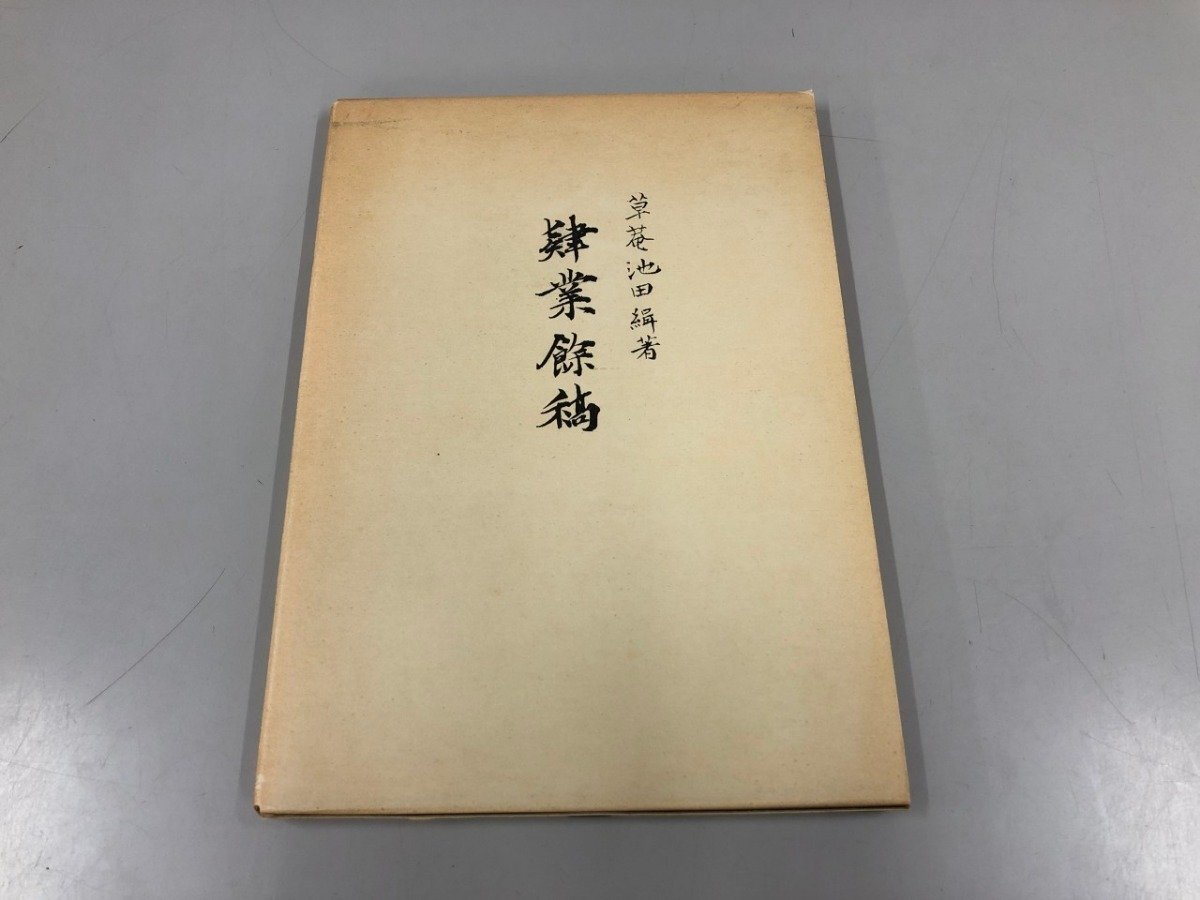 草菴池田緝著
肄業餘稿